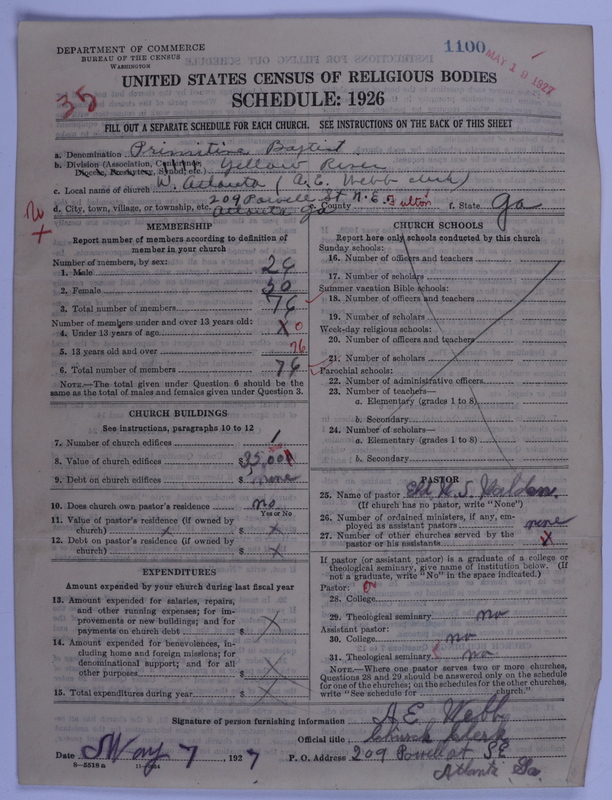 DEPARTMENT OF COMMERCE
BUREAU OF THE CENSUS
WASHINGTON
1100
MAY 19 1927
35
UNITED STATES CENSUS OF RELIGIOUS BODIES
SCHEDULE: 1926
FILL OUT A SEPARATE SCHEDULE FOR EACH CHURCH. SEE INSTRUCTIONS ON THE BACK OF THIS SHEET
a. Denomination Primitive Baptist
b. Division (Association, Conference, Diocese, Presbytery, Synod, etc.) Yellow River
c. Local name of church W. Atlanta (A.E. Webb clerk)
209 Powell St N.E.
d. City, town, village, or township, etc. Atlanta Ga e. County Fulton f. State Ga
MEMBERSHIP
Report number of members according to definition of
member in your church
Number of members, by sex:
1. Male 26
2. Female 50
3. Total number of members 76
Number of members under and over 13 years old:
4. Under 13 years of age X 0
5. 13 years old and over 76
6. Total number of members 76
NOTE.—The total given under Question 6 should be the
same as the total of males and females given under Question 3.
CHURCH BUILDINGS
See instructions, paragraphs 10 to 12
7. Number of church edifices 1
8. Value of church edifices $
9. Debt on church edifices $ none
10. Does church own pastor's residence no
Yes or No
11. Value of pastor's residence (if owned by
church) x $ x
12. Debt on pastor's residence (if owned by
church) $ x
EXPENDITURES
Amount expended by your church during last fiscal year
13. Amount expended for salaries, repairs,
and other running expenses; for im-
provements or new buildings; and for
payments on church debt $ x
14. Amount expended for benevolences, in-
cluding home and foreign missions; for
denominational support; and for all
other purposes $ x
15. Total expenditures during year $ x
CHURCH SCHOOLS
Report here only schools conducted by this church
Sunday schools:
16. Number of officers and teachers
17. Number of scholars
Summer vacation Bible schools:
18. Number of officers and teachers
19. Number of scholars
Week-day religious schools:
20. Number of officers and teachers
21. Number of scholars
Parochial schools:
22. Number of administrative officers
23. Number of teachers—
a. Elementary (grades 1 to 8)
b. Secondary
24. Number of scholars—
a. Elementary (grades 1 to 8)
b. Secondary
PASTOR
25. Name of pastor Eld
(If church has no pastor, write "None")
26. Number of ordained ministers, if any, em-
ployed as assistant pastors none
27. Number of other churches served by the
pastor or his assistants x
If pastor (or assistant pastor) is a graduate of a college or
theological seminary, give name of institution below. (If
not a graduate, write "No" in the space indicated.)
Pastor:
28. College
29. Theological seminary no
Assistant pastor:
30. College no
31. Theological seminary no
NOTE.—Where one pastor serves two or more churches,
Questions 28 and 29 should be answered only on the schedule
for one of the churches; on the schedules for the other churches,
write "See schedule for church."
Signature of person furnishing information A E Webb
Official title Church Clerk
Date May 7, 1927 P. O. Address 209 Powell St SE
8-5518a
Atlanta Ga.